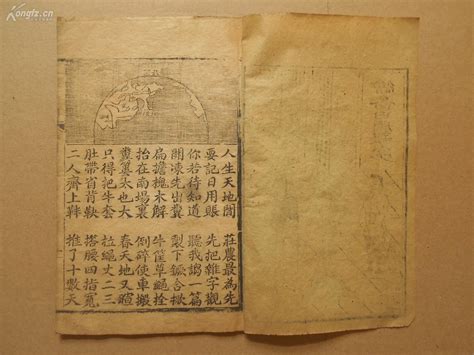 Kongfz.cn
人生天地間 莊農最為先
要記日用賬 先把雜字觀
你若待知道 聽我謅一篇
開凍先出糞 製下鐝合杴
扁擔槐木解 牛筐草繩拴
抬在南場裏 倒碎使車搬
糞簍太也大 春天地又暄
只得把牛套 拉繩丈二三
肚帶 搭腰四指寬
二人齊上靽 推了十數天